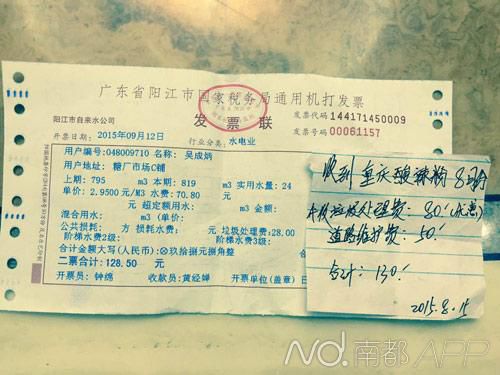 广东省阳江市国家税务局通用机打发票
阳江市自来水公司
发票联
发票代码 144171450009
发票号码 00061157
开票日期：2015年09月12日
行业分类：水电业
用户户号：048009710 名称：吴成炳
用户地址：糖厂市场C铺
上期：795 m3 本期：819 m3 实用水量：24
单价：2.9500元/M3 水费：70.80
元 超定额用水： m3 金额：
混合用水： m3 单价： 元
公共损耗： 方 损耗水费： 元 垃圾处理费：28.00
阶梯水费2级： 阶梯水费3级：
合计金额大写(人民币)：玖拾捌元捌角整
二票合计：128.50 元
开票员：钟绵 收款员：黄经蝉 开票单位(盖章)
收到 重庆酸辣粉 8月份
垃圾处理费：80！(优惠)
道路维护费：50！
合计：130！
2015.8.15
南都APP